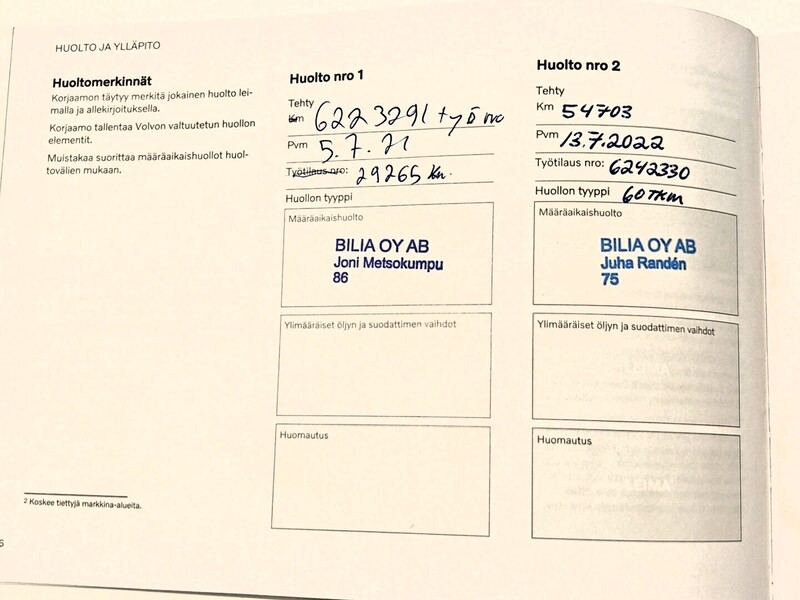 HUOLTO JA YLLÄPITO
Huoltomerkinnät
Korjaamon täytyy merkitä jokainen huolto lei-
malla ja allekirjoituksella.
Korjaamo tallentaa Volvon valtuutetun huollon
elementit.
Muistakaa suorittaa määräaikaishuollot huol-
tovälien mukaan.
2 Koskee tiettyjä markkina-alueita.
6
Huolto nro 1
Tehty
Km 6223291 työ no
Pvm 5.7.21
Työtilaus nro: 29265 Km.
Huollon tyyppi
Määräaikaishuolto
BILIA OY AB
Joni Metsokumpu
86
Ylimääräiset öljyn ja suodattimen vaihdot
Huomautus
Huolto nro 2
Tehty
Km 54703
Pvm 13.7.2022
Työtilaus nro: 6242330
Huollon tyyppi 60 TKM
Määräaikaishuolto
BILIA OY AB
Juha Randén
75
Ylimääräiset öljyn ja suodattimen vaihdot
Huomautus